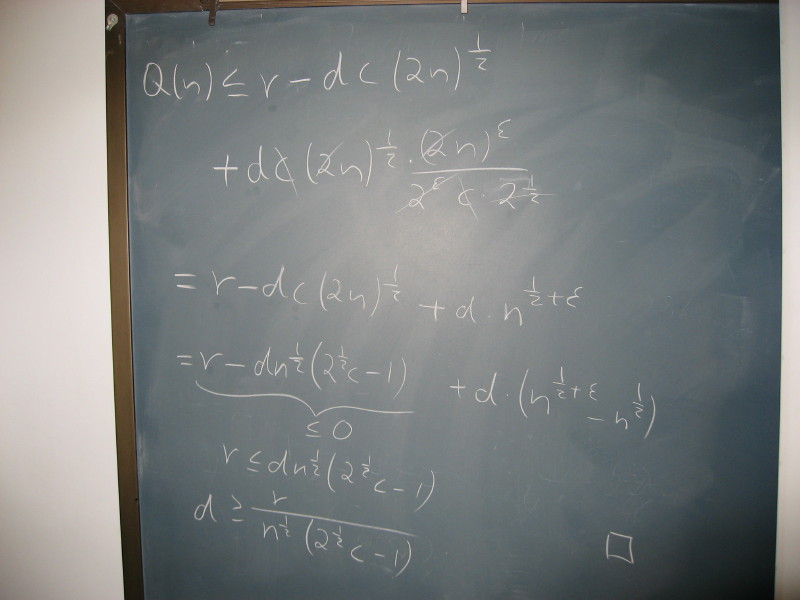 Q(n) ≤ r − dc(2n)^{1/2}
+ dc(2n)^{1/2} · (2n)^ε / (2^ε c · 2^{1/2})
= r − dc(2n)^{1/2} + d · n^{1/2+ε}
= r − dn^{1/2}(2^{1/2}c − 1) + d · (n^{1/2+ε} − n^{1/2})
≤ 0
r ≤ dn^{1/2}(2^{1/2}c − 1)
d ≥ r / (n^{1/2}(2^{1/2}c − 1))
□